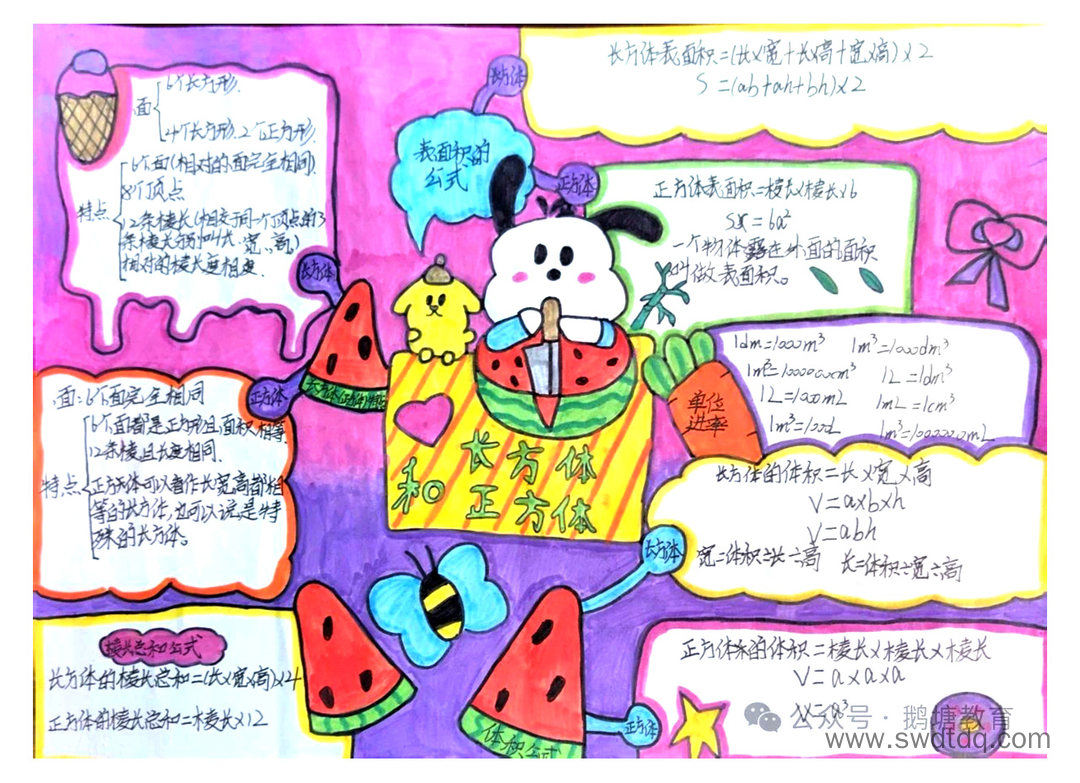 面
6个长方形.
4个长方形.2个正方形.
特点
6个面(相对的面完全相同)
8个顶点
12条棱长(相交于同一个顶点的3
条棱长分别叫长、宽、高)
相对的棱长度相等.
长方体
长方体
表面积的
公式
正方体
长方体表面积=(长×宽+长×高+宽×高)×2
S=(ab+ah+bh)×2
正方体表面积=棱长×棱长×6
=6a²
一个物体露在外面的面积
叫做表面积。
单位
进率
1dm=1000m³
1m³=1000dm³
1m³=1000000cm³
1L=1dm³
1L=1000mL
1mL=1cm³
1m³=1000L
1m³=1000000mL
正方体
面:6个面完全相同
特点
6个面都是正方形且面积相等.
12条棱且长度相同.
正方体可以看作长宽高都相
等的长方体,也可以说是特
殊的长方体。
长方体
和
正方体
长方体
长方体的体积=长×宽×高
V=a×b×h
V=abh
宽=体积÷长÷高
长=体积÷宽÷高
棱长总和公式
长方体的棱长总和=(长×宽×高)×4
正方体的棱长总和=棱长×12
体积公式
正方体
正方体的体积=棱长×棱长×棱长
V=a×a×a
V=a³
公众号·鹅塘教育
www.swdtdq.com